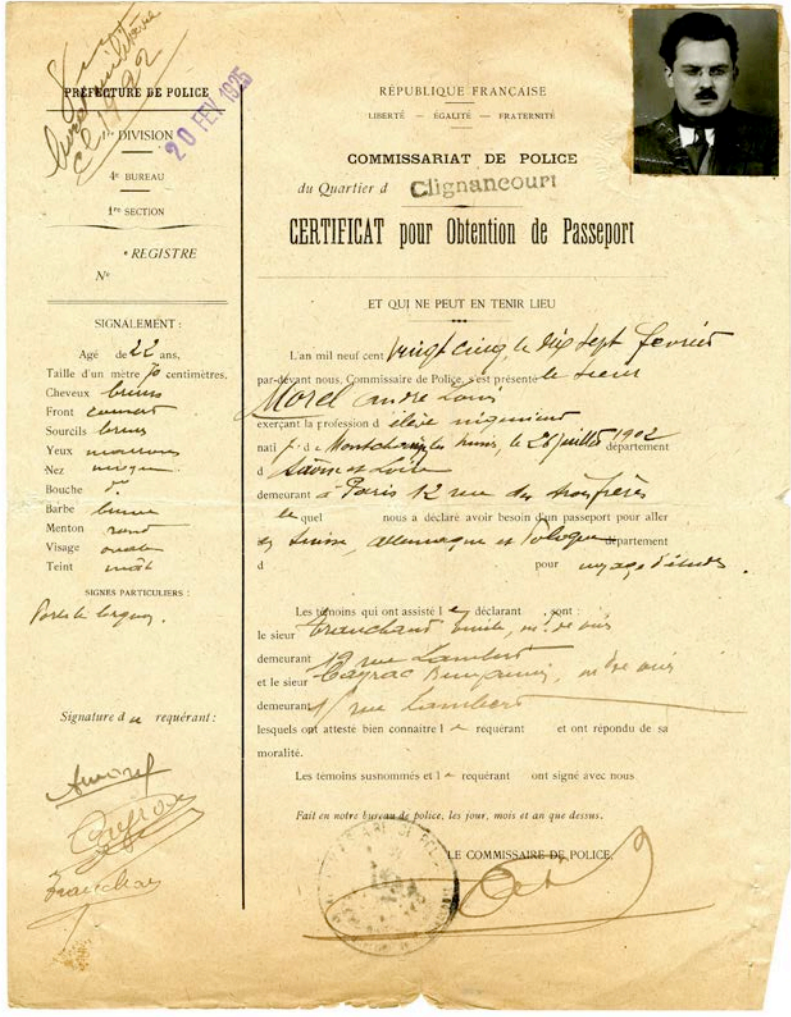 PRÉFECTURE DE POLICE
20 FEV 1925
1re DIVISION
4e BUREAU
1re SECTION
* REGISTRE
No
SIGNALEMENT :
Agé de 22 ans,
Taille d'un mètre 70 centimètres,
Cheveux bruns
Front
Sourcils bruns
Yeux marrons
Nez
Bouche do
Barbe brune
Menton rond
Visage ovale
Teint mat
SIGNES PARTICULIERS :
Porte le lorgnon.
Signature du requérant :
AMorel
Tranchard
RÉPUBLIQUE FRANÇAISE
LIBERTÉ — ÉGALITÉ — FRATERNITÉ
COMMISSARIAT DE POLICE
du Quartier d Clignancourt
CERTIFICAT pour Obtention de Passeport
ET QUI NE PEUT EN TENIR LIEU
L'an mil neuf cent vingt cinq, le dix sept février
par-devant nous, Commissaire de Police, s'est présenté le sieur
Morel André Louis
exerçant la profession d élève ingénieur
natif de Montchanin les mines, le 26 juillet 1902 département
d Saône et Loire
demeurant à Paris 12 rue des trois frères
lequel nous a déclaré avoir besoin d'un passeport pour aller
en Suisse, Allemagne et Pologne département
d pour voyage d'études.
Les témoins qui ont assisté le déclarant , sont :
le sieur Tranchard Emile, md de vins
demeurant 19 rue Lambert
et le sieur Cayrac Benjamin, md de vins
demeurant rue Lambert
lesquels ont attesté bien connaitre le requérant et ont répondu de sa
moralité.
Les témoins susnommés et le requérant ont signé avec nous
Fait en notre bureau de police, les jour, mois et an que dessus.
LE COMMISSAIRE DE POLICE,